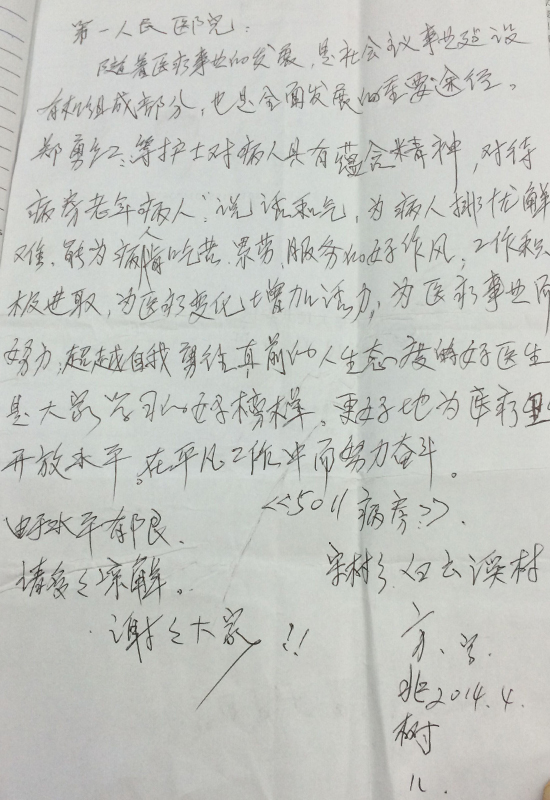 第一人民医院:
随着医疗事业的发展,是社会主义事业建设
有机组成部分,也是全面发展的重要途径。
郑勇红等护士对病人具有蕴含精神,对待
病房老年病人:说话和气,为病人排忧解
难、能为病人吃苦、累劳、服务的好作风,工作积
极进取,为医疗变化增加活力,为医疗事业而
努力,超越自我勇往直前的人生态度的好医生
是大家学习的好榜样。更好地为医疗
开放水平。在平凡工作中而努力奋斗。
<<5011病房>>.
由于水平有限.
请多多谅解。
宋村乡、白云溪村
谢谢大家!!
2014.4.
树
11.